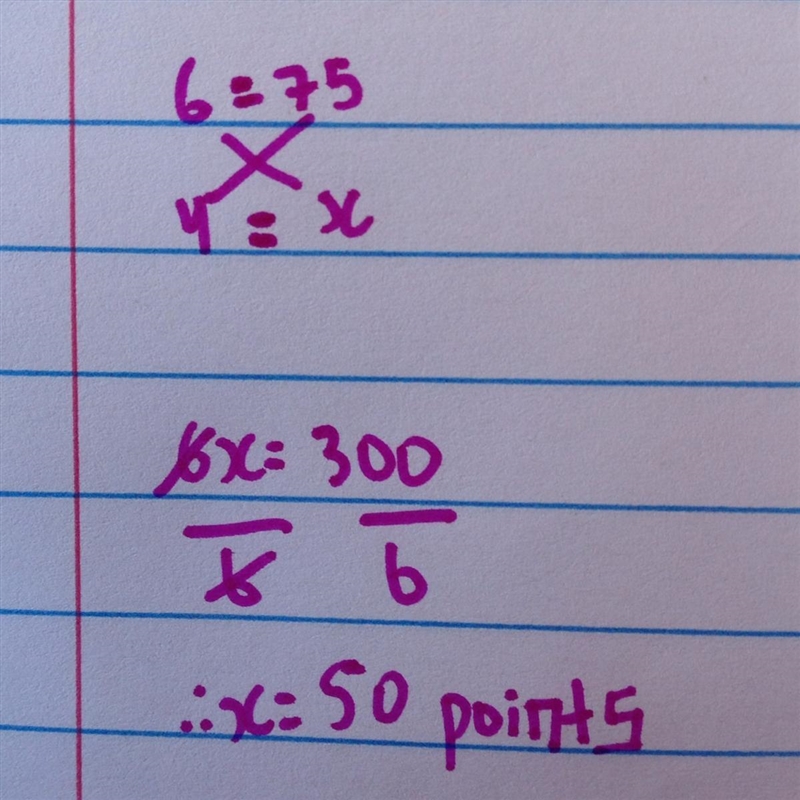 6 = 75
4 = x
6x = 300
6 6
∴ x = 50 points